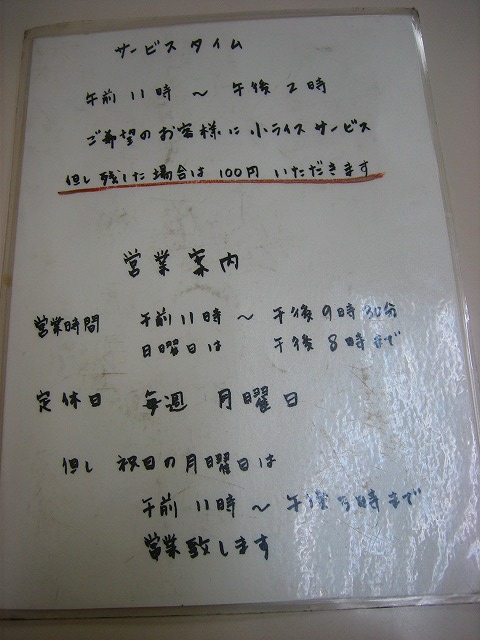 サービスタイム
午前11時 ～ 午後2時
ご希望のお客様に小ライスサービス
但し残した場合は100円いただきます
営業案内
営業時間 午前11時 ～ 午後9時30分
日曜日は 午後8時まで
定休日 毎週 月曜日
但し 祝日の月曜日は
午前11時 ～ 午後 時まで
営業致します